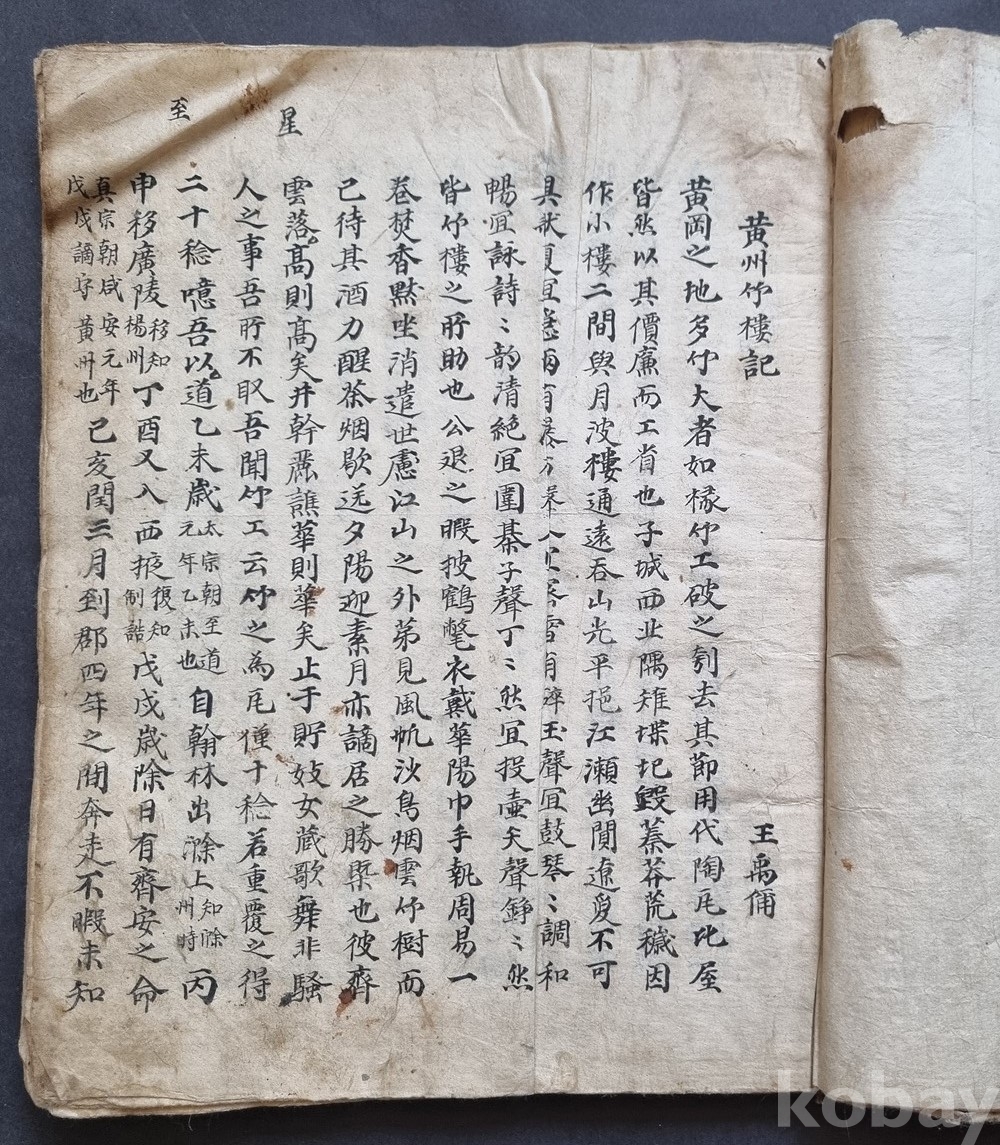 黃州竹樓記 王禹偁
黃岡之地多竹大者如椽竹工破之刳去其節用代陶瓦比屋
皆然以其價廉而工省也子城西北隅雉堞圮毀蓁莽荒穢因
作小樓二間與月波樓通遠吞山光平挹江瀨幽闃遼敻不可
具狀夏宜急雨有瀑布 宜 雪有碎玉聲宜鼓琴〻調和
暢宜詠詩〻韵清絕宜圍棊子聲丁〻然宜投壺矢聲錚〻然
皆竹樓之所助也公退之暇披鶴氅衣戴華陽巾手執周易一
卷焚香默坐消遣世慮江山之外苐見風帆沙鳥烟雲竹樹而
已待其酒力醒茶烟歇送夕陽迎素月亦謫居之勝槩也彼齊
雲落高則高矣井幹麗譙華則華矣止于貯妓女藏歌舞非騷
星
人之事吾所不取吾聞竹工云竹之為瓦僅十稔若重覆之得
二十稔噫吾以道乙未歲太宗朝至道元年乙未也自翰林出滁上知滁州時丙
至
申移廣陵移知楊州丁酉又入西掖復知制誥戊戌歲除日有齊安之命
真宗朝咸安元年戊戌謫守黃州也己亥閏三月到郡四年之間奔走不暇未知
kobay